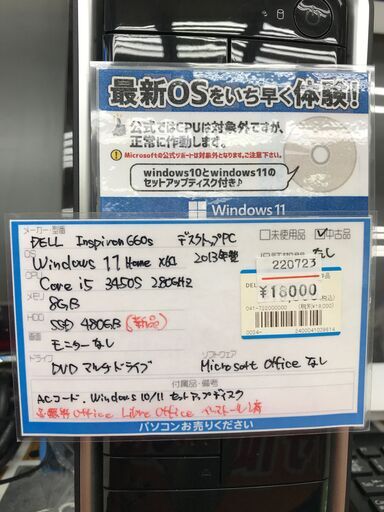 最新OSをいち早く体験!
公式ではCPUは対象外ですが、
正常に作動します。
Microsoftの公式サポートは対象外となります。ご注意下さい。
windows10とwindows11の
セットアップディスク付き♪
Windows 11
メーカー・型番
DELL Inspiron 660s デスクトップPC
□未使用品 ☑中古品
OS
Windows 11 Home x64 2013年製
なし
CPU
Core i5 3450S 2.80GHz
220723
メモリ
8GB
DEL
¥18000
HDD
SSD 480GB (新品)
画面
モニターなし
ドライブ
DVDマルチドライブ
ソフトウェア
Microsoft Office なし
付属品・備考
ACコード. Windows 10/11 セットアップディスク
Office Libre Office インストール済
パソコンお売りください